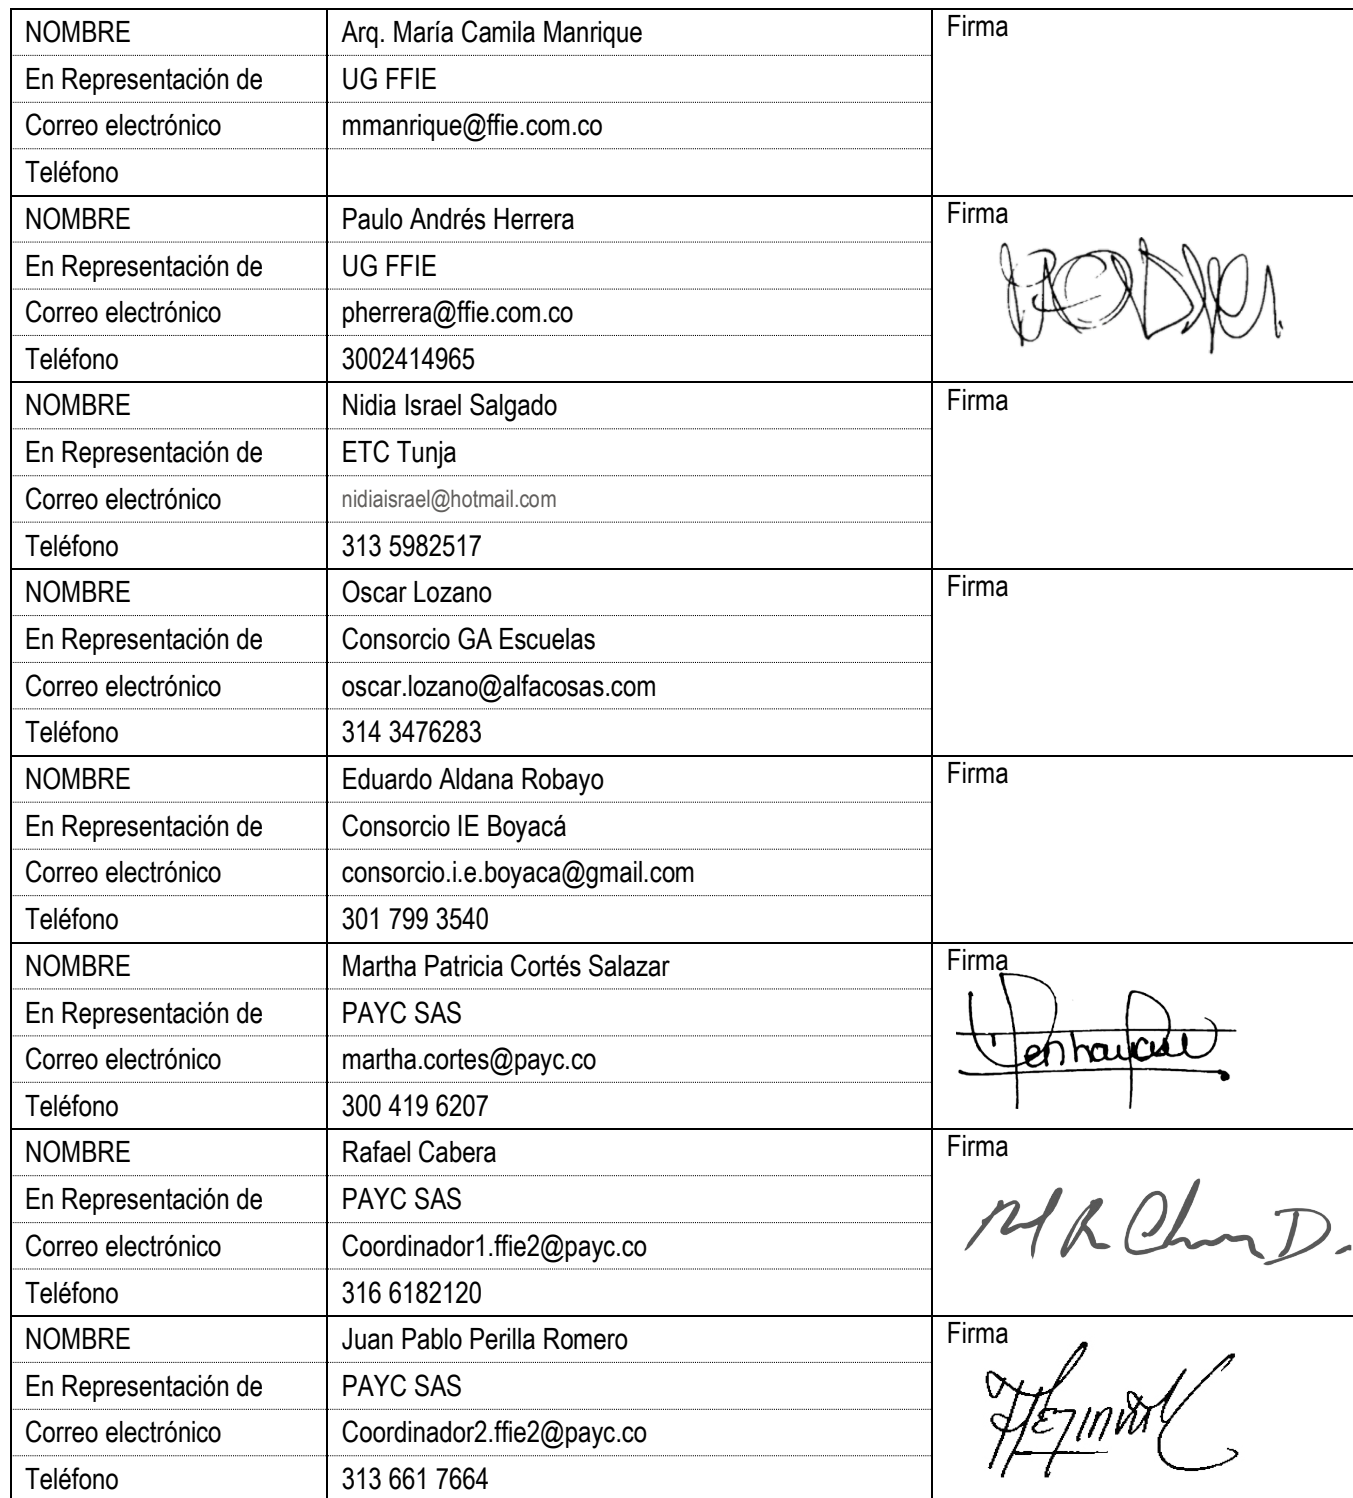 NOMBRE Arq. María Camila Manrique Firma
En Representación de UG FFIE
Correo electrónico mmanrique@ffie.com.co
Teléfono
NOMBRE Paulo Andrés Herrera Firma
En Representación de UG FFIE
Correo electrónico pherrera@ffie.com.co
Teléfono 3002414965
NOMBRE Nidia Israel Salgado Firma
En Representación de ETC Tunja
Correo electrónico nidiaisrael@hotmail.com
Teléfono 313 5982517
NOMBRE Oscar Lozano Firma
En Representación de Consorcio GA Escuelas
Correo electrónico oscar.lozano@alfacosas.com
Teléfono 314 3476283
NOMBRE Eduardo Aldana Robayo Firma
En Representación de Consorcio IE Boyacá
Correo electrónico consorcio.i.e.boyaca@gmail.com
Teléfono 301 799 3540
NOMBRE Martha Patricia Cortés Salazar Firma
En Representación de PAYC SAS
Correo electrónico martha.cortes@payc.co
Teléfono 300 419 6207
NOMBRE Rafael Cabera Firma
En Representación de PAYC SAS
Correo electrónico Coordinador1.ffie2@payc.co
Teléfono 316 6182120
NOMBRE Juan Pablo Perilla Romero Firma
En Representación de PAYC SAS
Correo electrónico Coordinador2.ffie2@payc.co
Teléfono 313 661 7664